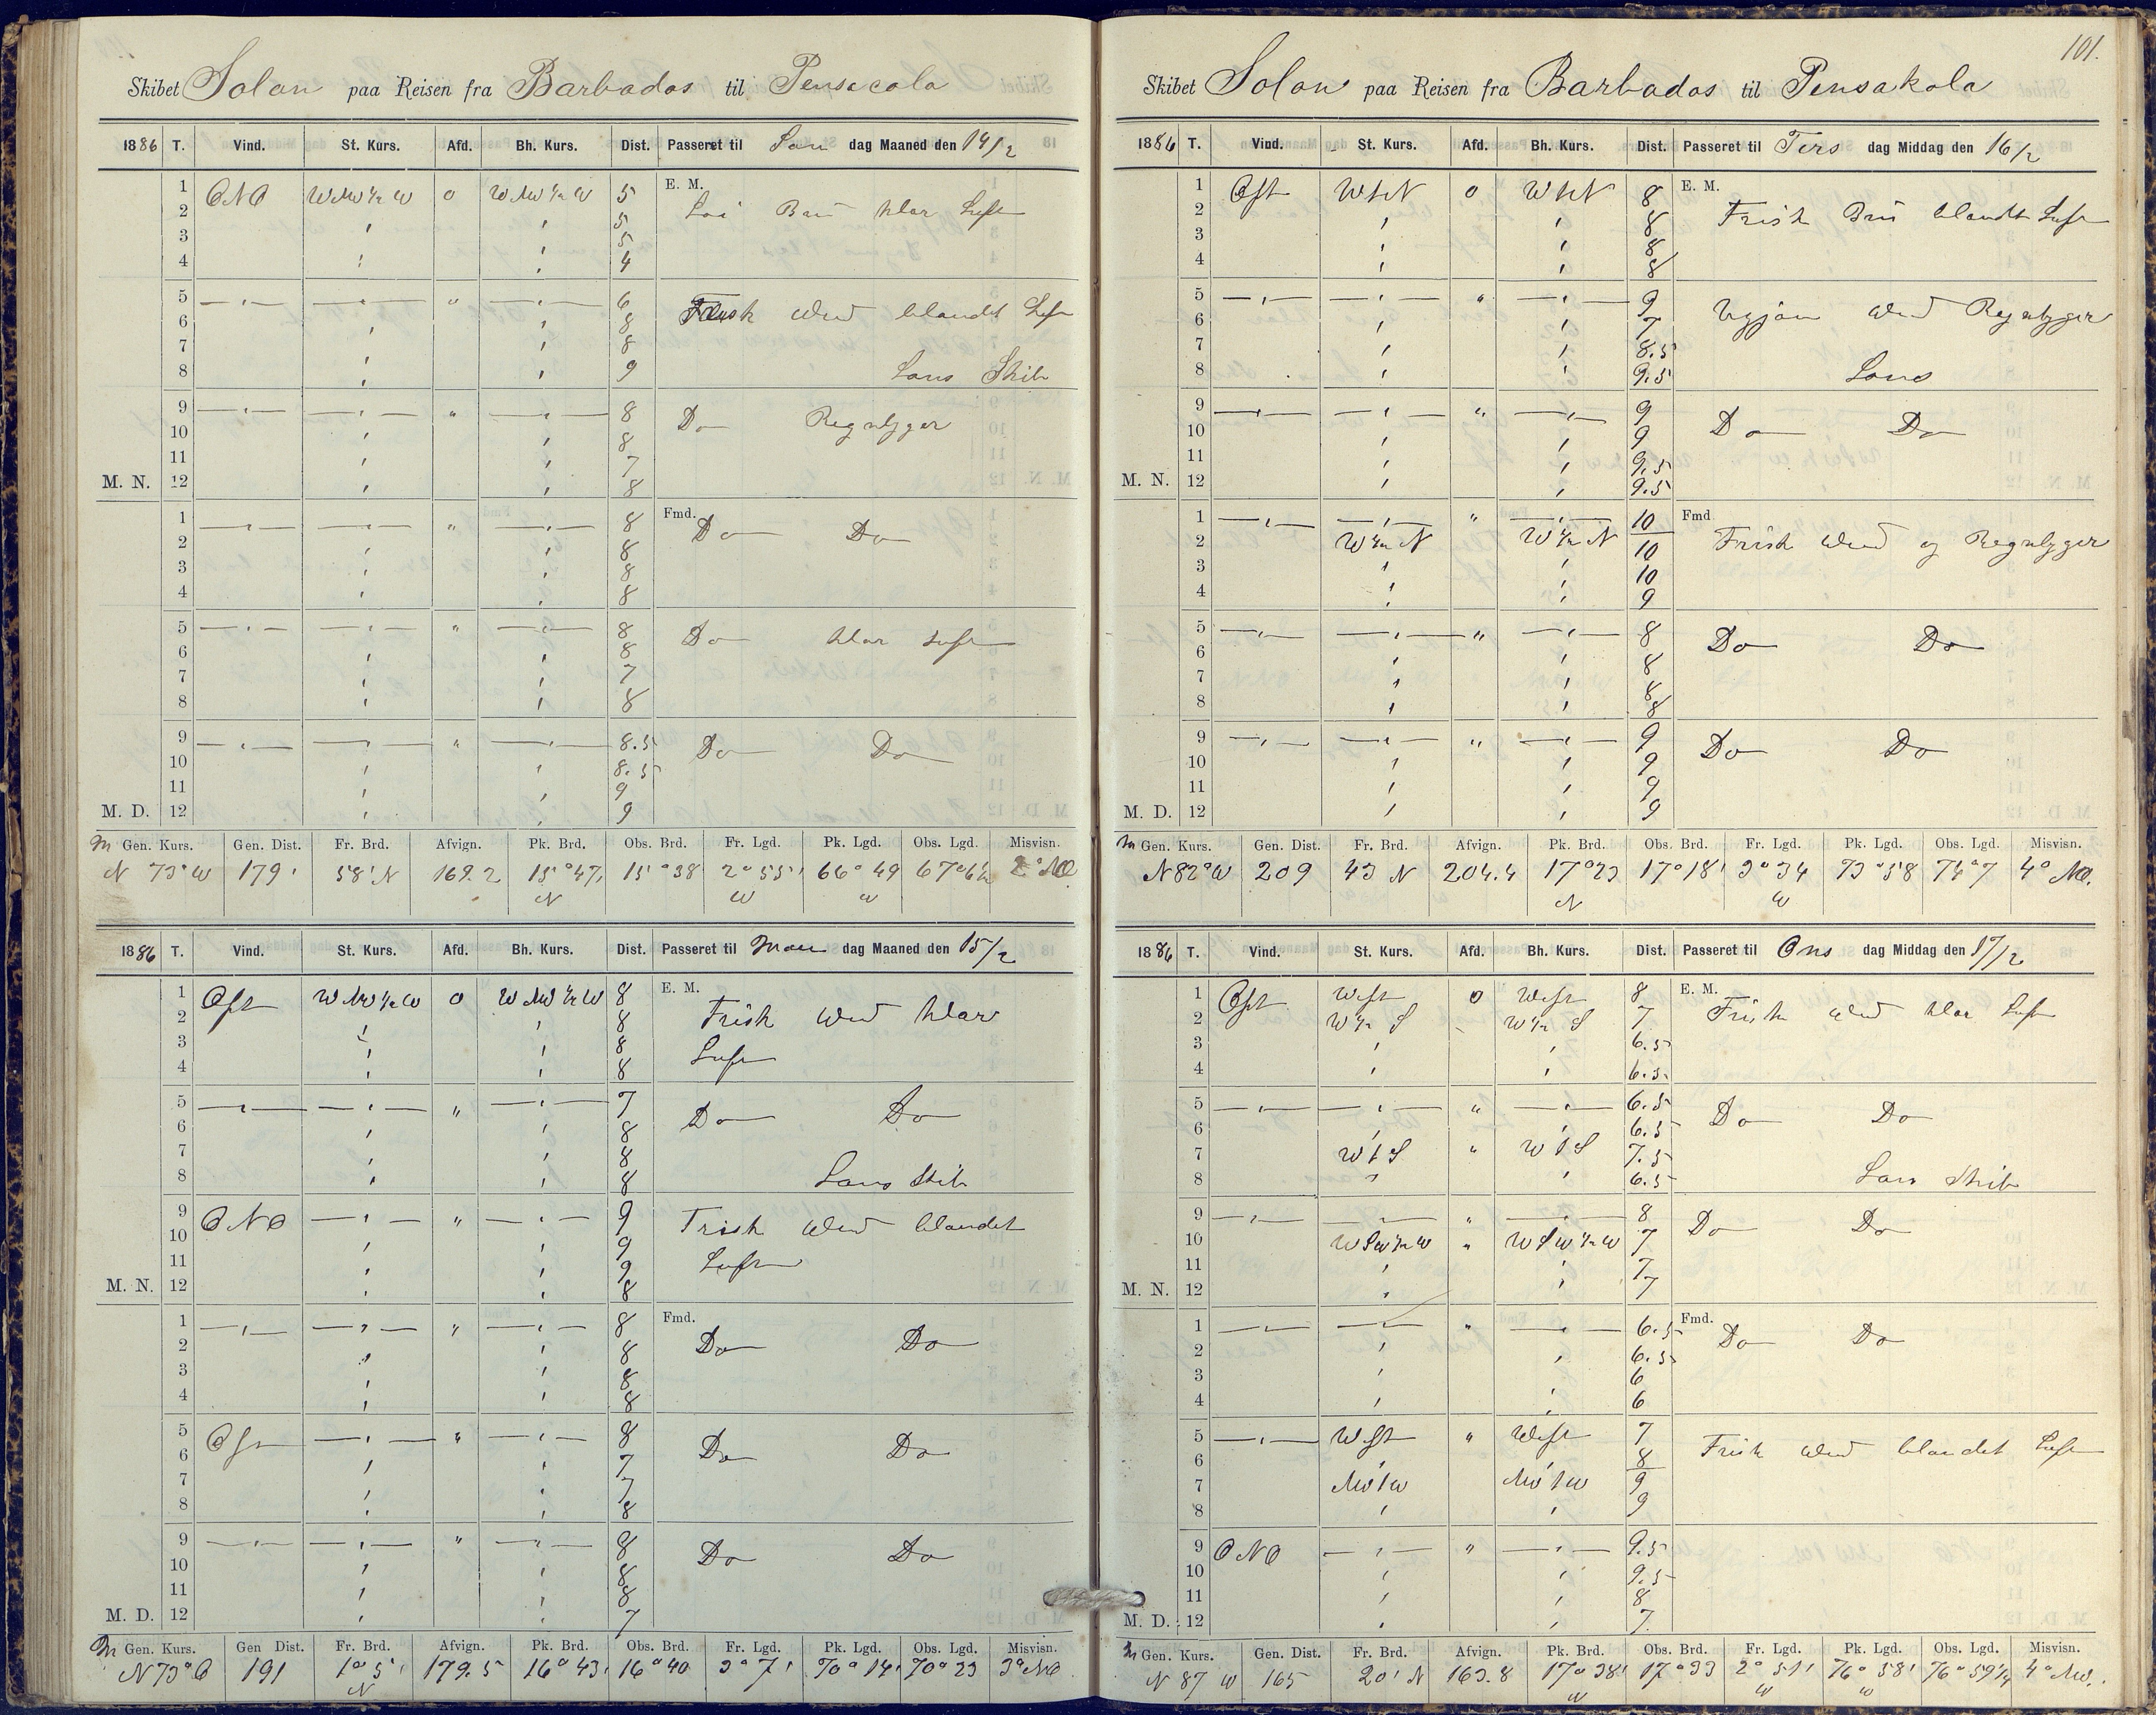 Skibet Solon paa Reisen fra Barbados til Pensacola
1886 T. Vind. St. Kurs. Afd. Bh. Kurs. Dist. Passeret til Søn dag Maaned den 14/2
1 ONO WNW½W 0 WNW½W 5 E. M.
2 " " 5 Bris klar Luft
3 5
4 " " 4
5 — " — — " — " — " — 6 Frisk Wind blandet Luft
6 " " 8
7 " " 8
8 " " 9 Lans Skib
9 — " — — " — " — " — 8 Do Regnbyger
10 " " 8
11 " " 7
M. N. 12 " " 8
1 — " — — " — " — " — 8 Fmd. Do Do
2 " " 8
3 " " 8
4 " " 8
5 — " — — " — " — " — 8 Do klar Luft
6 " " 8
7 " " 7
8 " " 8
9 — " — — " — " — " — 8.5 Do Do
10 " " 8.5
11 " " 9
M. D. 12 " " 9
m Gen. Kurs. Gen. Dist. Fr. Brd. Afvign. Pk. Brd. Obs. Brd. Fr. Lgd. Pk. Lgd. Obs. Lgd. Misvisn.
N 73° W 179' 58' N 169.2 15°47, 15°38 2°55' 66°49 67°6½ 2° NO
N W W
1886 T. Vind. St. Kurs. Afd. Bh. Kurs. Dist. Passeret til Man dag Maaned den 15/2
1 Ost WNW½W 0 WNW½W 8 E. M.
2 " " 8 Frisk Wind klar
3 " " 8 Luft
4 " " 8
5 — " — — " — " — " — 7 Do Do
6 " " 8
7 " " 8
8 " " 8 Lans Skib
9 ONO — " — " — " — 9 Frisk Wind blandet
10 " " 9
11 " " 9 Luft
M. N. 12 " " 8
1 — " — — " — " — " — 8 Fmd. Do Do
2 " " 8
3 " " 8
4 " " 8
5 Ost — " — " — " — 8 Do Do
6 " " 7
7 " " 7
8 " " 8
9 — " — — " — " — " — 8 Do Do
10 " " 8
11 " " 8
M. D. 12 " " 7
m Gen. Kurs. Gen Dist. Fr. Brd. Afvign. Pk. Brd. Obs. Brd. Fr. Lgd. Pk. Lgd. Obs. Lgd. Misvisn.
N 73° O 191 1° 5' 179.5 16° 43' 16° 40 3° 7' 70° 14' 70° 23 3° NO
N
101.
Skibet Solon paa Reisen fra Barbados til Pensakola
1886 T. Vind. St. Kurs. Afd. Bh. Kurs. Dist. Passeret til Tirs dag Middag den 16/2
1 Ost WtN 0 WtN 8 E. M.
2 " " 8 Frisk Bris blandt Luft
3 " " 8
4 " " 8
5 — " — — " — " — " — 9 Ugjævn Wind Regnbyger
6 " " 7
7 " " 8.5
8 " " 9.5 Lans
9 — " — — " — " — " — 9 Do Do
10 " " 9
11 " " 9.5
M. N. 12 " " 9.5
1 — " — — " — " — " — 10 Fmd
2 W½N W½N 10 Frisk Wind og Regnbyger
3 " " 10
4 " " 9
5 — " — — " — " — " — 8 Do Do
6 " " 8
7 " " 8
8 " " 8
9 — " — — " — " — " — 9 Do Do
10 " " 9
11 " " 9
M. D. 12 " " 9
m Gen. Kurs. Gen. Dist. Fr. Brd. Afvign. Pk. Brd. Obs. Brd. Fr. Lgd. Pk. Lgd. Obs. Lgd. Misvisn.
N 82° W 209 43 N 204.4 17°23 17°18' 3°34 73°58 74°7 4° NO.
N W
1886 T. Vind. St. Kurs. Afd. Bh. Kurs. Dist. Passeret til Ons dag Middag den 17/2
1 Ost West 0 West 8 E. M.
2 W½S W½S 7 Frisk Wind klar Luft
3 " " 6.5
4 " " 6.5
5 — " — — " — " — " — 6.5 Do Do
6 " 6.5
7 WtS " WtS 7.5
8 " " 6.5 Lans Skib
9 — " — — " — " — " — 8 Do Do
10 WSW½W " WSW½W 7
11 " " 7
M. N. 12 " " 7
1 — " — — " — " — " — 6.5 Fmd. Do Do
2 " " 6.5
3 " 6
4 " " 6
5 — " — West " West 7 Frisk Wind blandet Luft
6 " " 8
7 NWtW NWtW 9
8 " " 9
9 ONO — " — " — " — 9.5
10 " " 9.5
11 " " 8
M. D. 12 " " 7
m Gen. Kurs. Gen. Dist. Fr. Brd. Afvign. Pk. Brd. Obs. Brd. Fr. Lgd. Pk. Lgd. Obs. Lgd. Misvisn.
N 87 W 165 20' N 163.8 17° 38' 17° 33 2° 51' 76° 58' 76° 59¼ 4° NO.
W W W